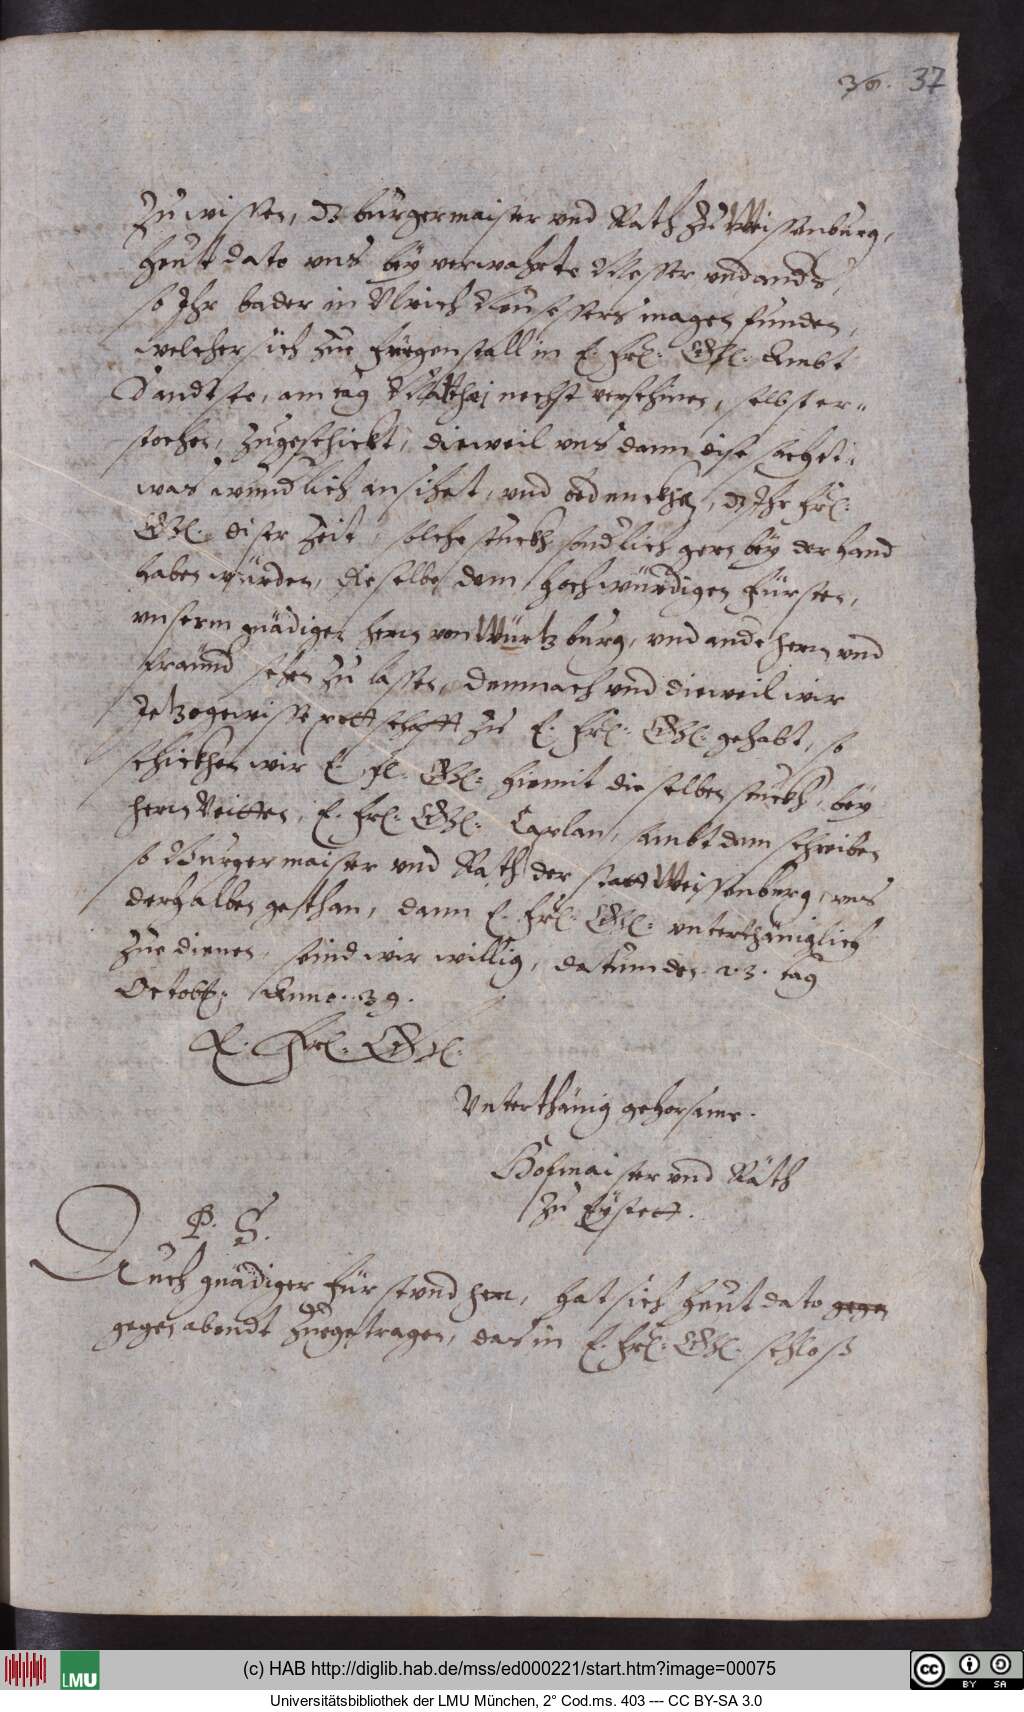 36. 37
Zu wissen, dz burgermaister vnd Rath zu Weissenburg,
heut dato vns bey verwahrte Messer vnd anders,
so Ihr bader in Vlrich Neusessers magen funden,
welcher sich zue Fuegenstall in E. Frl: Gl: Ambt
Sandtsee, am tag Mathei nechst verschinen, selbst er-
stochen, zugeschickt, dieweil vns dann dise sach et-
was wundlich ansihet, vnd bedenckhen, dz Ihr Frl:
Gl: diser Zeit, solche stuckh sondlich gern bey der hand
haben würden, dieselbe dem hochwürdigen Fürsten,
vnserm gnädigen hern von Würtzburg, vnd ande hern vnd
fraind sehen zu lassen, demnach vnd dieweil wir
Jetzo gewisse pottschafft zu E. Frl: Gl: gehabt, so
schickhen wir E. Fl: Gl: hiemit dieselben stuckh, bey
hern Veitten, E. Frl: Gl: Caplan, sambt dem schreiben
so Burgermaister vnd Rath der statt Weissenburg, vns
derhalben gethan, dann E. Frl: Gl: vnterthäniglich
zue dienen, seind wir willig, datum den 23. tag
Octobr: Anno. 39.
E. Frl: Gl:
Vnterthänig gehorsame.
Hofmaister vnd Räth
zu Eystett.
P. S.
Auch gnädiger Fürst vnd herr, hat sich heut dato gegen
gegen abendt zuegetragen, das in E. Frl: Gl: schloß
(c) HAB http://diglib.hab.de/mss/ed000221/start.htm?image=00075
LMU
cc BY SA
Universitätsbibliothek der LMU München, 2° Cod.ms. 403 --- CC BY-SA 3.0